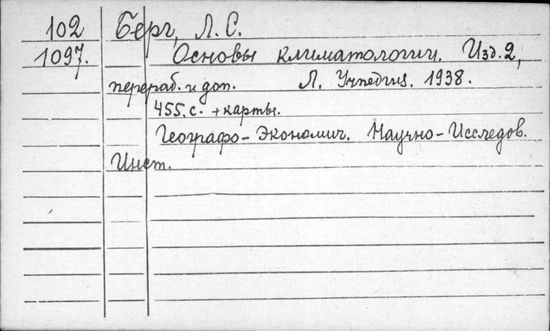 102 Берг, Л. С.
1097. Основы климатологии. Изд. 2,
перераб. и доп. Л. Учпедгиз. 1938.
455 с. + карты.
Географо-Экономич. Научно-Исследов.
Инст.